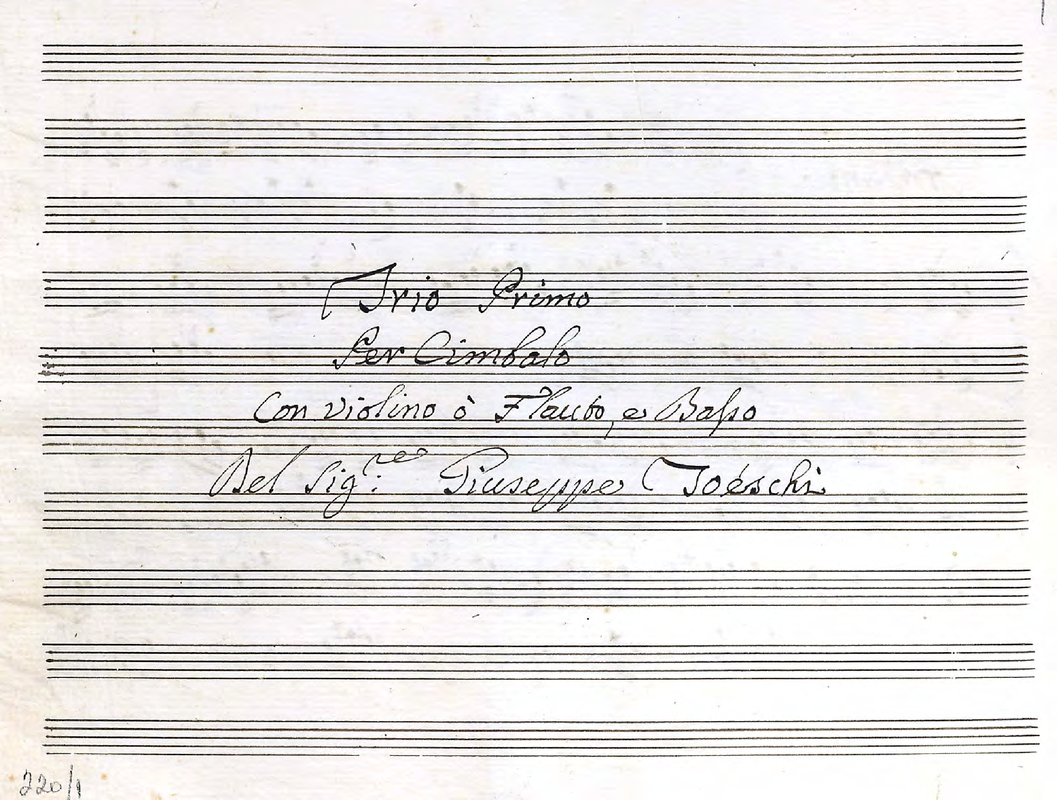 Trio Primo
Per Cimbalo
Con violino ò Flauto, e Basso
Del Sig:re Giuseppe Toéschi
220/1